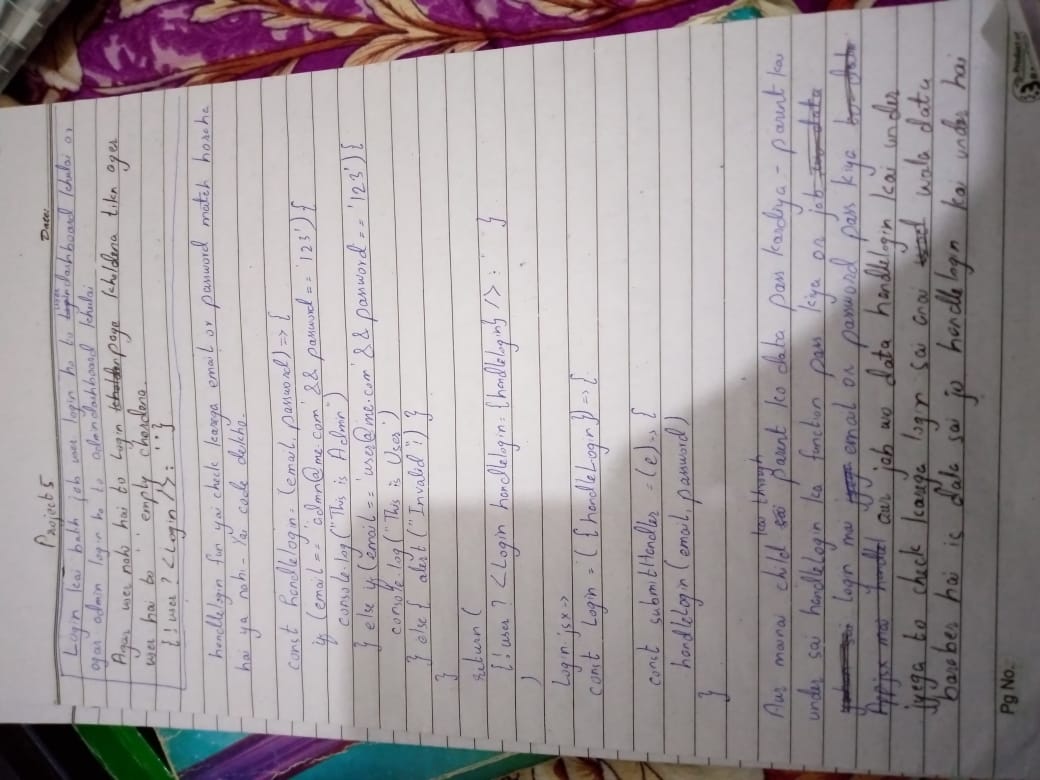 Date:
Project 5
Login kai bath jab user login ho to user dashboard khulai or
agar admin login ho to admin dashboard khulai
Agar user nahi hai to Login page kholdena tiken ager
user hai to '' empty chordena.
{ !user ? <Login /> : '' }
handlelogin fun yai check karega email or password match horaha
hai ya nahi - Yai code dekho.
const handlelogin = (email, password) => {
if (email == 'admn@me.com' && password == '123') {
console.log("This is Admn")
} else if (email == 'user@me.com' && password == '123') {
console.log("This is User")
} else { alert("Invalid") }
}
return (
{ !user ? <Login handlelogin={handlelogin} /> : '' }
)
Login jsx ->
const Login = ({handleLogin}) => {
const submitHandler = (e) => {
handleLogin (email, password)
}
Aur mainai child kai through parent ko data pass kardiya - parent kai
under sai handleLogin ka function pass kiya or jab
login mai email or password pass kiya
aur jab wo data handlelogin kai under
jyega to check karega login sai anai wala data
baraber hai is data sai jo handlelogin kai under hai
Pg No: